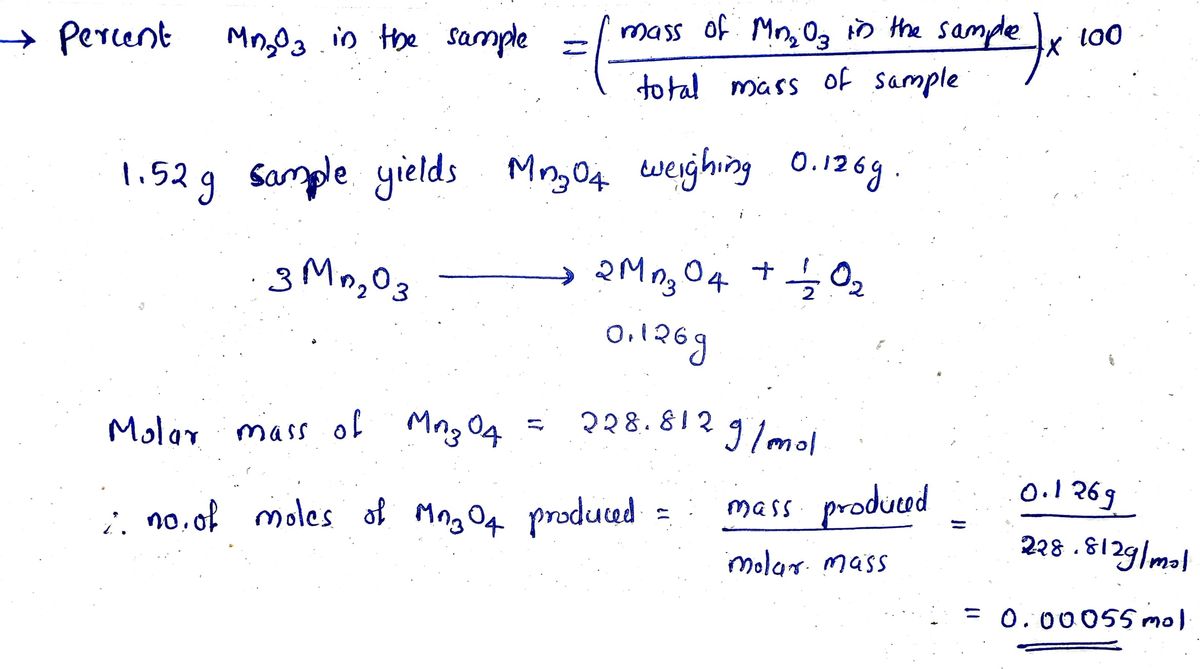 → Percent Mn₂O₃ in the sample = (mass of Mn₂O₃ in the sample / total mass of sample) x 100
1.52 g sample yields Mn₃O₄ weighing 0.126g.
3 Mn₂O₃ ⟶ 2Mn₃O₄ + 1/2 O₂
0.126g
Molar mass of Mn₃O₄ = 228.812 g/mol
∴ no. of moles of Mn₃O₄ produced = mass produced / molar mass = 0.126g / 228.812g/mol
= 0.00055 mol